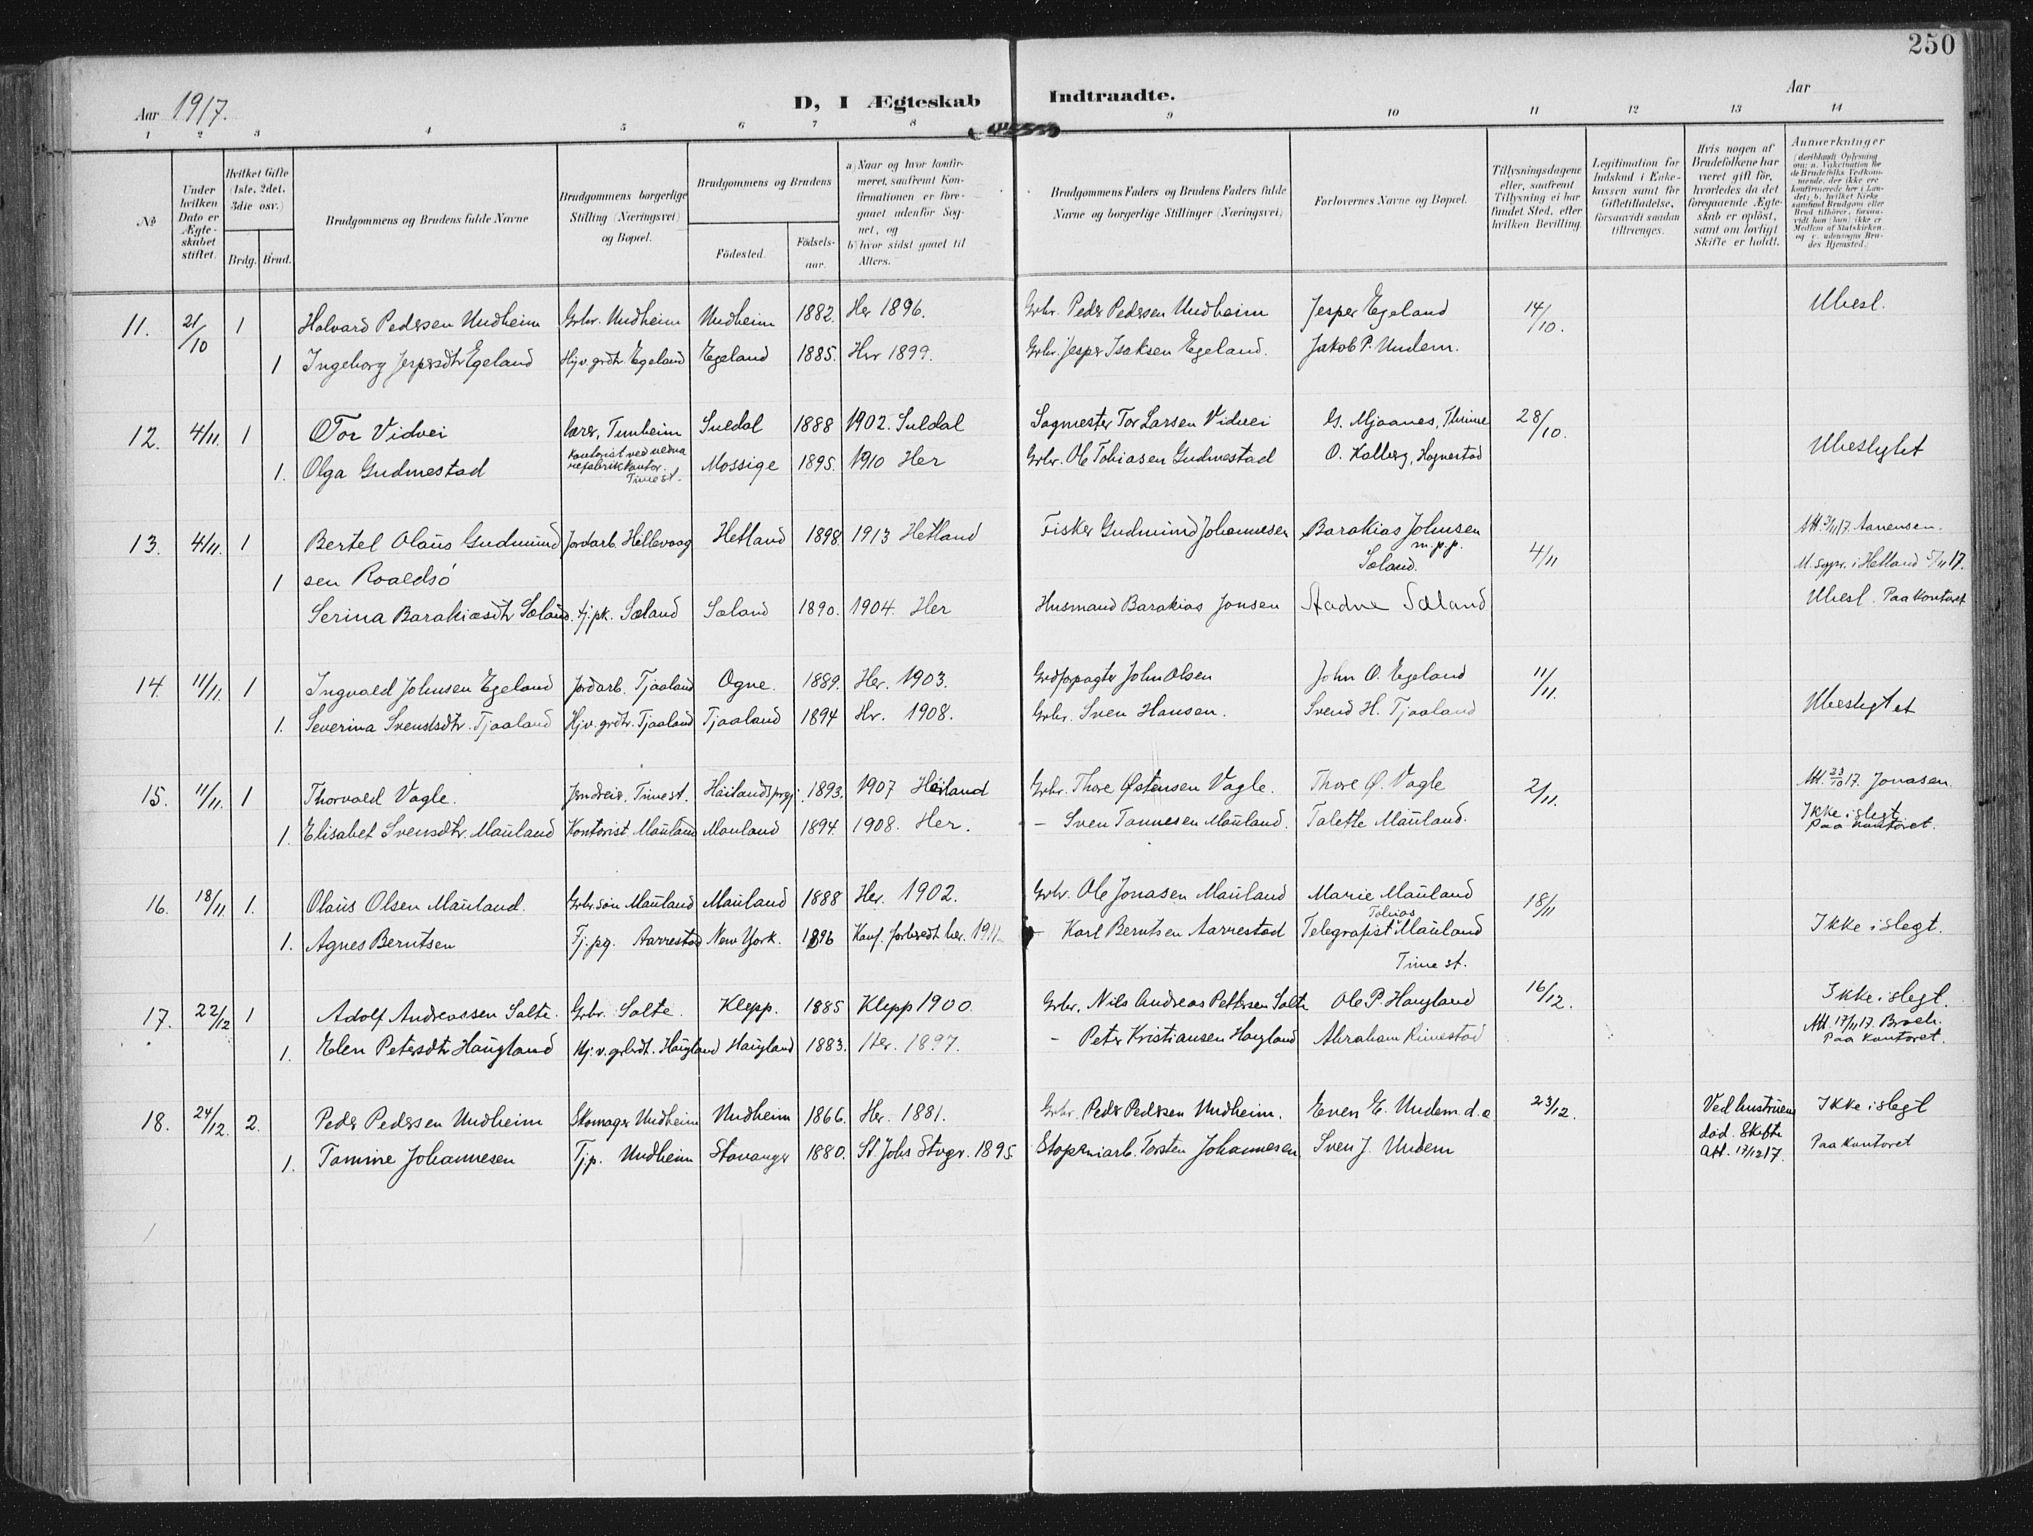 250
Aar 1917.
D, I Ægteskab Indtraadte.
Aar
1 2 3 4 5 6 7 8 9 10 11 12 13 14
№
Under hvilken Dato er Ægteskabet stiftet.
Hvilket Gifte (1ste, 2det, 3die osv.)
Brdg. Brud.
Brudgommens og Brudens fulde Navne
Brudgommens borgerlige Stilling (Næringsvei) og Bopæl.
Brudgommens og Brudens
Fødested. Fødselsaar.
a) Naar og hvor konfirmeret, saafremt Konfirmationen er foregaaet udenfor Sognet, og
b) hvor sidst gaaet til Alters.
Brudgommens Faders og Brudens Faders fulde Navne og borgerlige Stillinger (Næringsvei)
Forlovernes Navne og Bopæl.
Tillysningsdagene eller, saafremt Tillysning ei har fundet Sted, efter hvilken Bevilling.
Legitimation for Indskud i Enkekassen samt for Giftetilladelse, forsaavidt saadan tiltrænges.
Hvis nogen af Brudefolkene har været gift før, hvorledes da det foregaaende Ægteskab er opløst, samt om lovligt Skifte er holdt.
Anmærkninger
(deriblandt Oplysning om: a. Vakcination for de Brudefolks Vedkommende, der ikke ere konfirmerede her i Landet; b. hvilket Kirkesamfund Brudgom eller Brud tilhører, forsaavidt han (hun) ikke er Medlem af Statskirken, og c. udensogns Brudes Hjemsted.)
11. 21/10 1 Halvard Pedersen Undheim Grbr. Undheim Undheim 1882. Her 1896. Grbr. Peder Pedersen Undheim Jesper Egeland 14/10. Ubesl.
1 Ingeborg Jespersdtr Egeland Hjv. grdtr. Egeland Egeland 1885. Her 1899. Grbr. Jesper Isaksen Egeland. Jakob P. Undem.
12. 4/11. 1 Tor Vidvei Lærer, Tunheim Suldal 1888 1902. Suldal Sagmester Tor Larsen Vidvei G. Mjaanes, Thime 28/10. Ubeslgtet
1. Olga Gudmestad Kontorist ved Timest. Mossige 1895. 1910 Her Grbr. Ole Tobiasen Gudmestad O. Kalberg, Hognestad
13. 4/11. 1 Bertel Olaus Gudmund Jordarb. Hillevaag Hetland 1898. 1913 Hetland Fisker Gudmund Johannesen Barakias Johnsen m.p.p. Sæland. 4/11 Att. 3/11 17. Aanensen.
1 sen Roaldsö M. sgpr. i Hetland 5/11 17.
Serina Barakiasdtr Sæland. Tj.pk. Sæland Sæland 1890. 1904. Her Husmand Barakias Jonsen Aadne Sæland Ubesl. Paa Kontoret
14. 11/11. 1 Ingvald Johnsen Egeland Jordarb. Tjaaland Ogne. 1889. Her. 1903. Grdforpagter John Olsen John O. Egeland 11/11. Ubeslgtet
1. Severina Svendsdtr. Tjaaland Hjv. grdtr. Tjaaland Tjaaland 1894 Her. 1908. Grbr. Sven Hansen. Svend H. Tjaaland
15. 11/11. 1 Thorvald Vagle. Timest. Höilands prgj. 1893. 1907 Höiland Grbr. Thore Østensen Vagle. Thore Ø. Vagle 2/11. Att. 23/10 17. Jonasen
1. Elisabet Svensdtr. Mauland Kontorist Mauland Mauland 1894. 1908. Her. — Sven Tønnesen Mauland. Talette Mauland. Ikke i slegt. Paa Kontoret.
16. 18/11. 1. Olaus Olsen Mauland. Grbr.søn Mauland Mauland 1888 Her. 1902. Grbr. Ole Jonasen Mauland Marie Mauland 18/11
1. Agnes Berntsen Tj.pg. Aarrestad New York. 1896 Konf. forberedt her. 1911. — Karl Berntsen Aarrestad Telegrafist Tobias Mauland Time st. Ikke i slegt.
17. 22/12 1 Adolf Andreassen Salte. Grbr. Salte. Klepp. 1885 Klepp 1900. Grbr. Nils Andreas Pettersen Salte Ole P. Haugland 16/12. Ikke i slegt.
1. Elen Petersdtr Haugland Hj.v. grbrdt. Haugland Haugland 1883. Her. 1897. — Peter Kristiansen Haugland Abraham Rimestad Att. 17/11 17. Broch. Paa Kontoret.
18. 24/12. 2. Peder Pedersen Undheim Skomager Undheim Undheim 1866. Her. 1881. Grbr. Peder Pedersen Undheim. Even E. Undem d.e 23/12. Ved hustruens död. Skifte att. 17/12 17. Ikke i slegt
1. Tomine Johannesen Tj.p. Undheim Stavanger 1880. St. Johs Stvgr. 1895. Stoperiarb. Torsten Johannesen Sven J. Undem Paa Kontoret